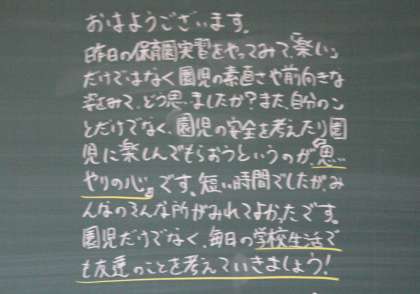 おはようございます。
昨日の保育園実習をやってみて、「楽しい」
だけではなく園児の素直さや前向きな
姿をみて、どう思いましたか？また、自分のこ
とだけでなく、園児の安全を考えたり園
児に楽しんでもらおうというのが「思い
やりの心」です。短い時間でしたが、み
んなのそんな所がみれてよかったです。
園児だけでなく、毎日の学校生活で
も友達のことを考えていきましょう！